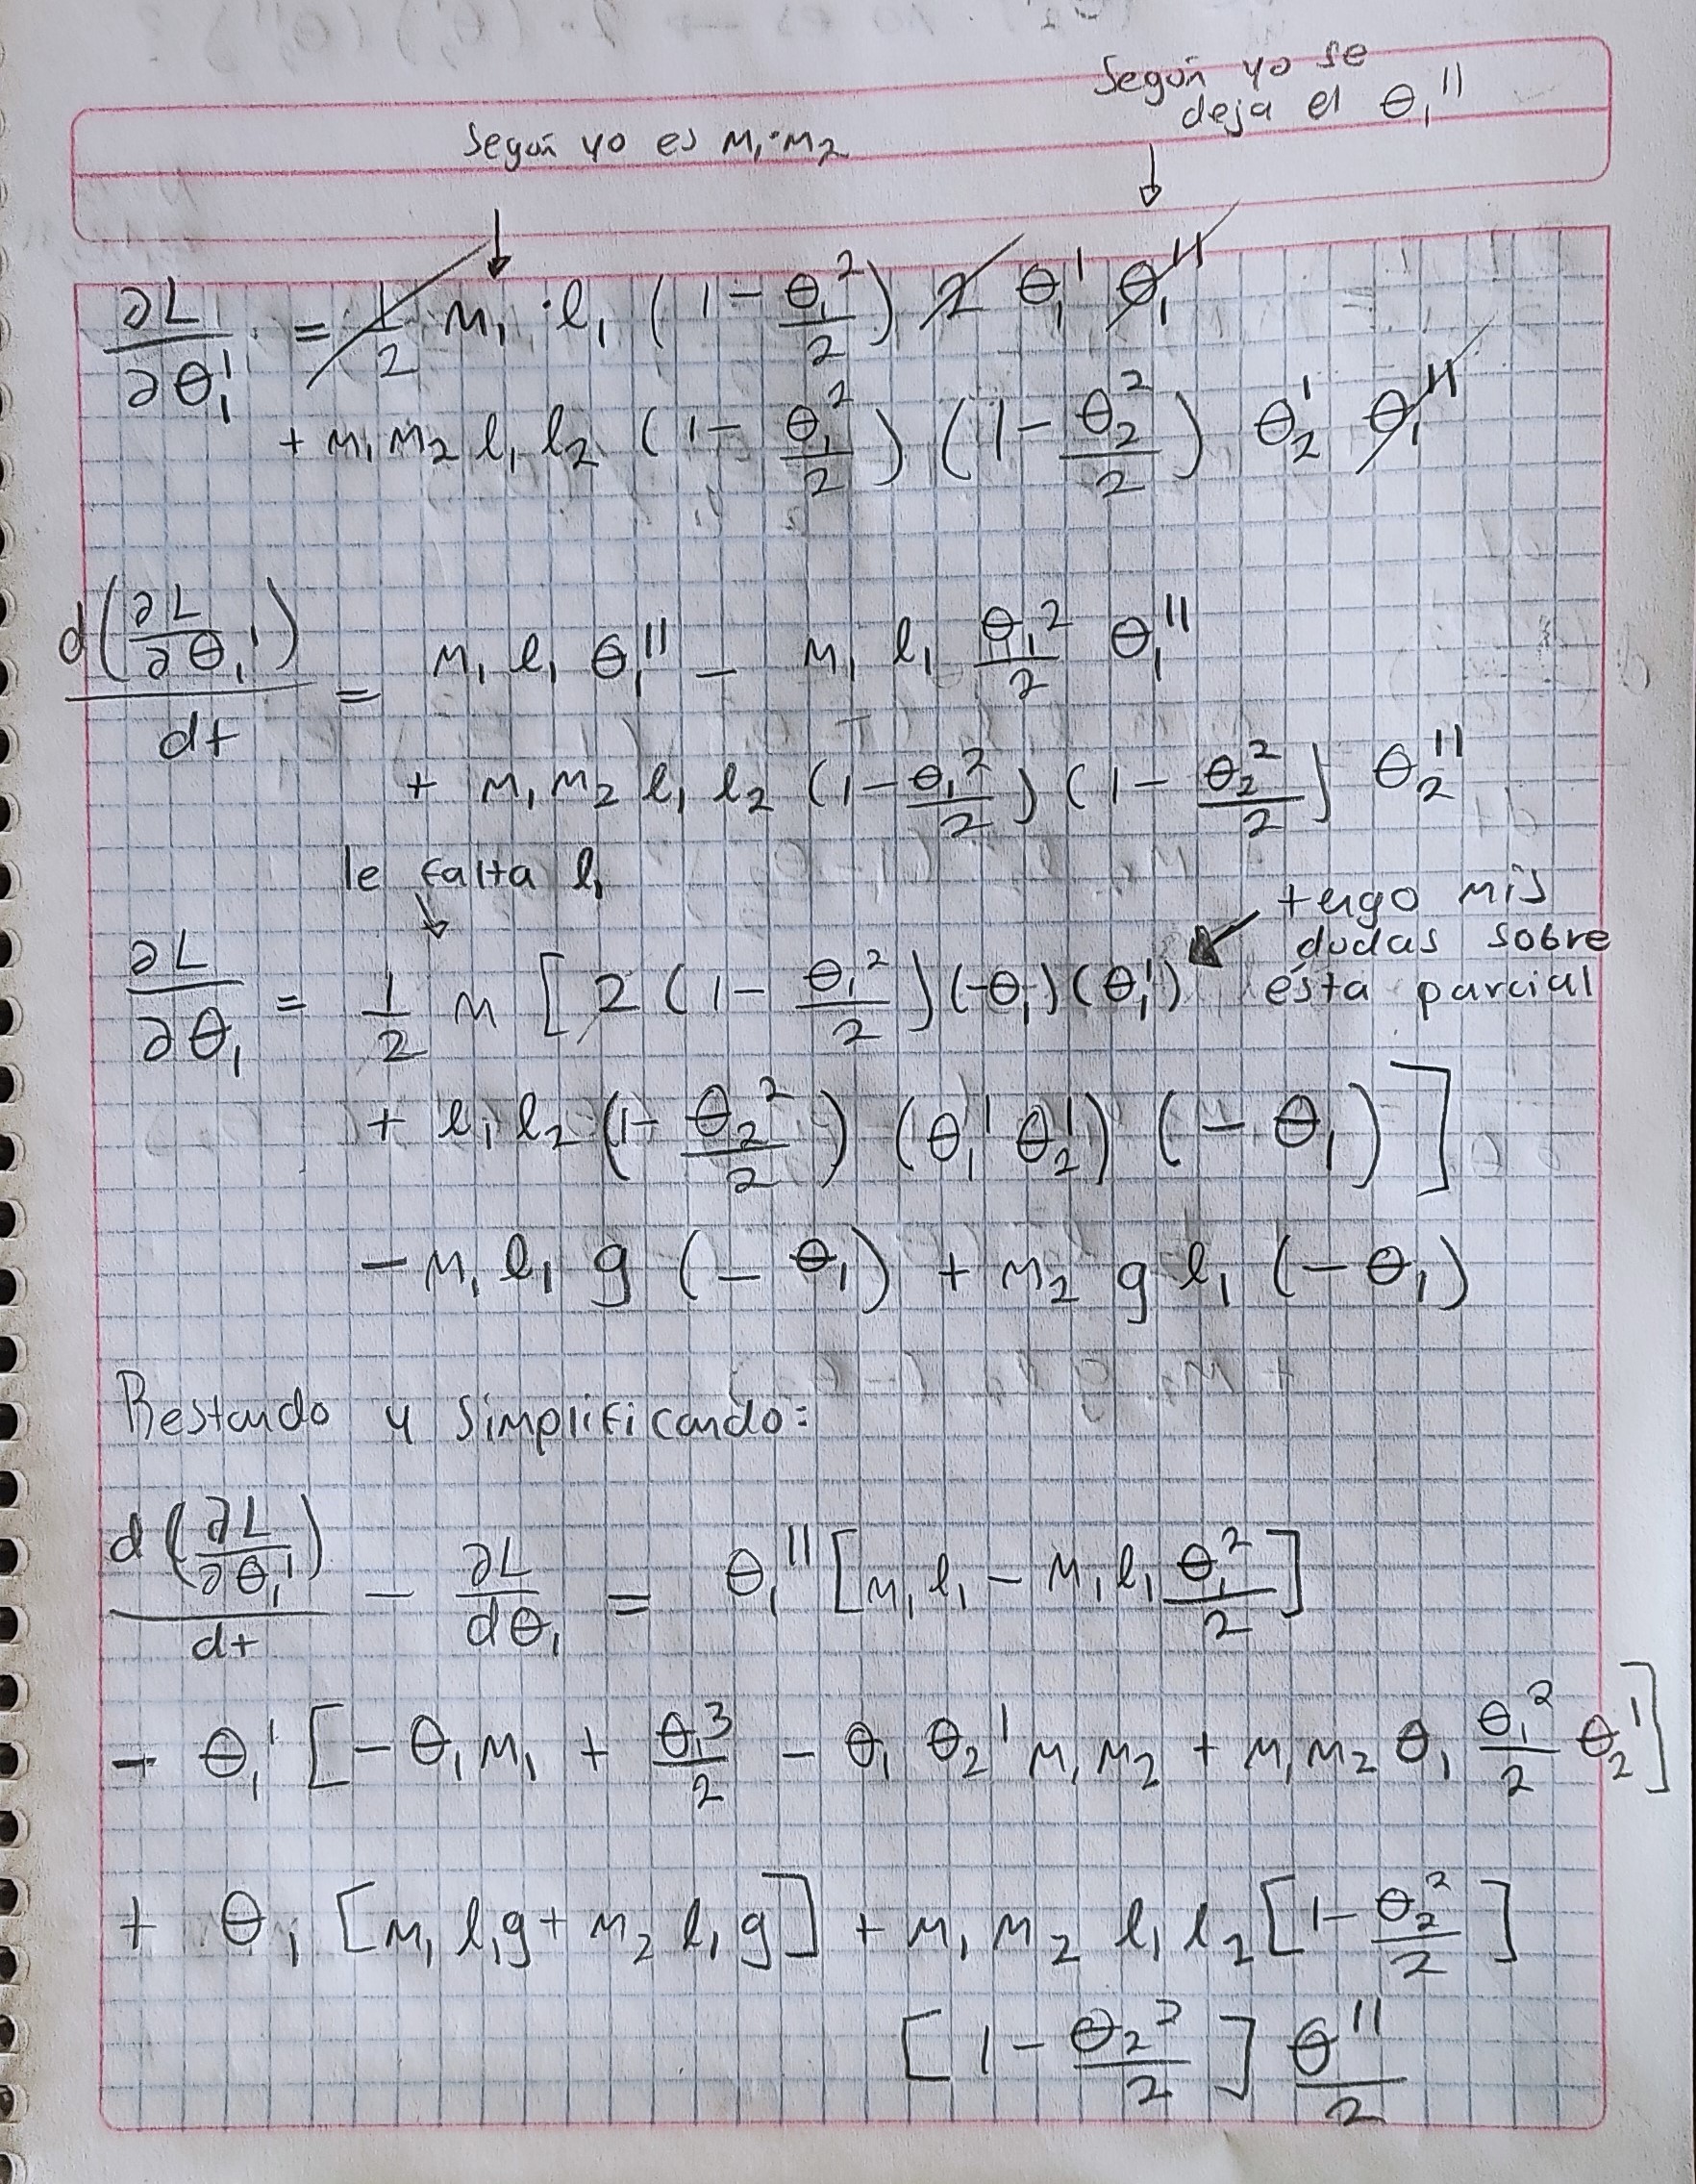 Según yo se
deja el θ₁''
Según yo es m₁·m₂
∂L/∂θ₁' = 1/2 m₁·l₁ (1 - θ₁²/2) 2 θ₁' θ₁''
+ m₁m₂ l₁ l₂ (1 - θ₁²/2) (1 - θ₂²/2) θ₂' θ₁''
d(∂L/∂θ₁')/dt = m₁ l₁ θ₁'' - m₁ l₁ θ₁²/2 θ₁''
+ m₁m₂ l₁ l₂ (1 - θ₁²/2) (1 - θ₂²/2) θ₂''
le falta l₁
tengo mis
dudas sobre
ésta parcial
∂L/∂θ₁ = 1/2 m [2 (1 - θ₁²/2) (-θ₁) (θ₁')
+ l₁ l₂ (1 - θ₂²/2) (θ₁' θ₂') (-θ₁)]
- m₁ l₁ g (-θ₁) + m₂ g l₁ (-θ₁)
Restando y Simplificando:
d(∂L/∂θ₁')/dt - ∂L/dθ₁ = θ₁'' [m₁l₁ - m₁l₁ θ₁²/2]
- θ₁' [-θ₁m₁ + θ₁³/2 - θ₁ θ₂' m₁m₂ + m₁m₂ θ₁ θ₁²/2 θ₂']
+ θ₁ [m₁ l₁g + m₂ l₁g] + m₁ m₂ l₁ l₂ [1 - θ₂²/2]
[1 - θ₂²/2] θ''/2